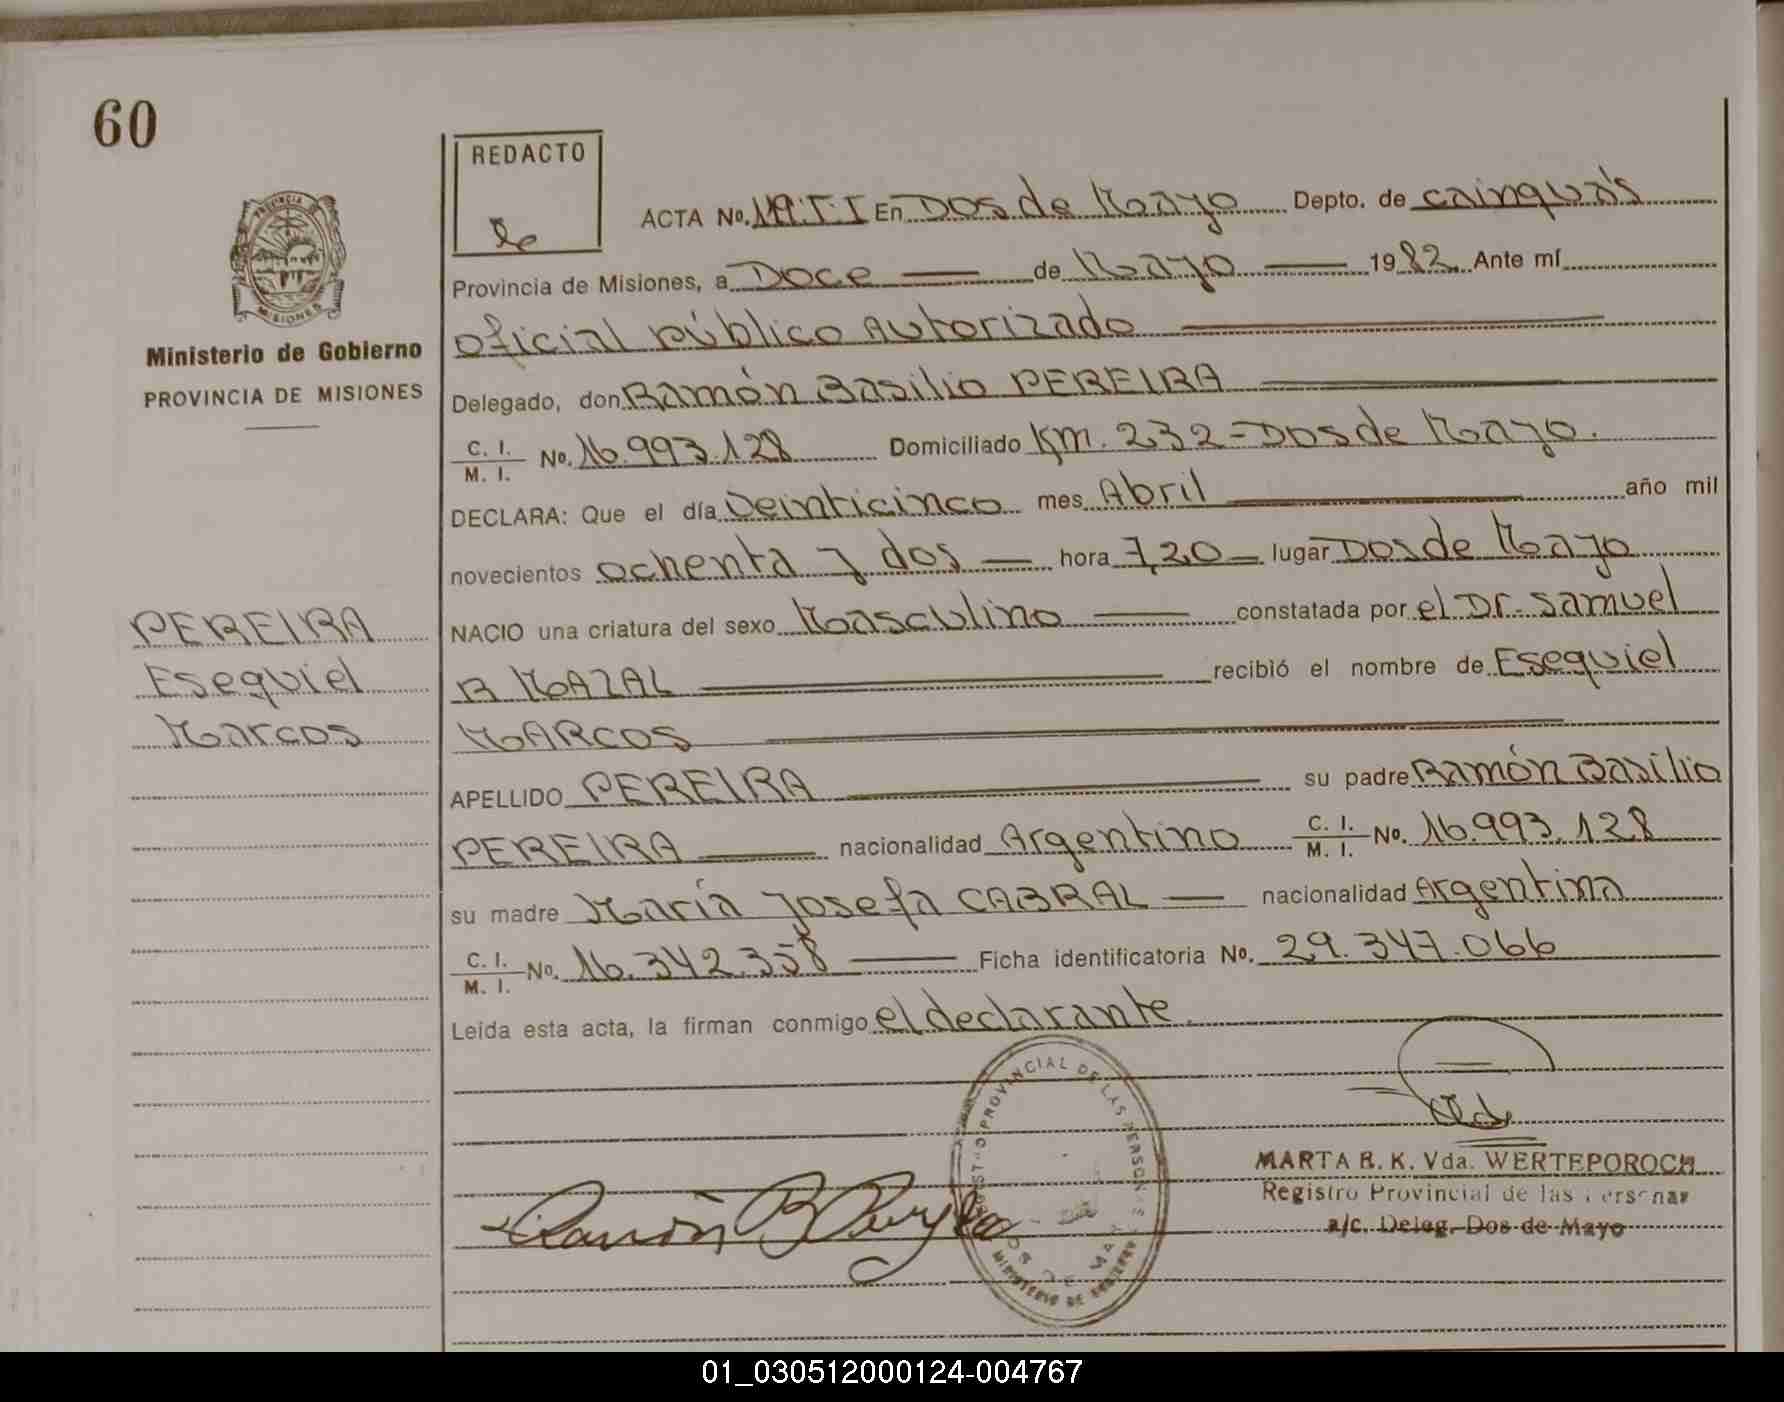 60
REDACTO
ACTA No. 119. T. I En Dos de Mayo Depto. de cainguás
Provincia de Misiones, a Doce de Mayo 1982 Ante mí
oficial público Autorizado
Delegado, don Ramón Basilio PEREIRA
C. I. M. I. No. 16.993.128 Domiciliado Km. 232 - Dos de Mayo.
DECLARA: Que el día veinticinco mes Abril año mil
novecientos ochenta y dos hora 7,20 lugar Dos de Mayo
NACIO una criatura del sexo Masculino constatada por el Dr. Samuel
B MAZAL recibió el nombre de Esequiel
MARCOS
APELLIDO PEREIRA su padre Ramón Basilio
PEREIRA nacionalidad Argentino C. I. M. I. No. 16.993.128
su madre María Josefa CABRAL nacionalidad Argentina
C. I. M. I. No. 16.342.358 Ficha identificatoria No. 29.347.066
Leida esta acta, la firman conmigo el declarante.
PROVINCIA
MISIONES
Ministerio de Gobierno
PROVINCIA DE MISIONES
PEREIRA
Esequiel
Marcos
REGISTRO PROVINCIAL DE LAS PERSONAS
DOS DE MAYO
MINISTERIO DE GOBIERNO
Ramón B Pereyra
MARTA R. K. Vda. WERTEPOROCH
Registro Provincial de las Personas
a/c. Deleg. Dos de Mayo
01_030512000124-004767